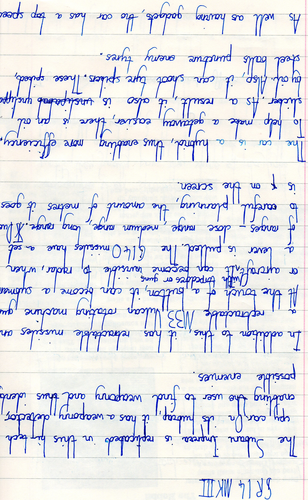 GR14 MK III
The Subaru Impreza is replicated in this hi-tech
spy car. In its hubcap it has a weaponry detector
enabling the user to find weaponry and thus identi
possible enemies.
In addition to this it has retractable missiles an
a retractable M35 Vulcan rotating machine gun
At the touch of a button, it can become a submar
or aircraft
(with torpedoes or guns)
can become invisible to radar when
a lever is pulled. The G140 missiles have a set
of ranges - close range, medium range, long range. The
to careful planning, the amount of metres it goes
is on the screen.
The car is a hybrid, thus enabling more efficiency.
To help make a getaway easier, there is an oil
slicker. As a result, it also is
by an Asp. it can shoot tyre spikes. These spiked,
steel balls puncture enemy tyres.
As well as having gadgets, the car has a top speed